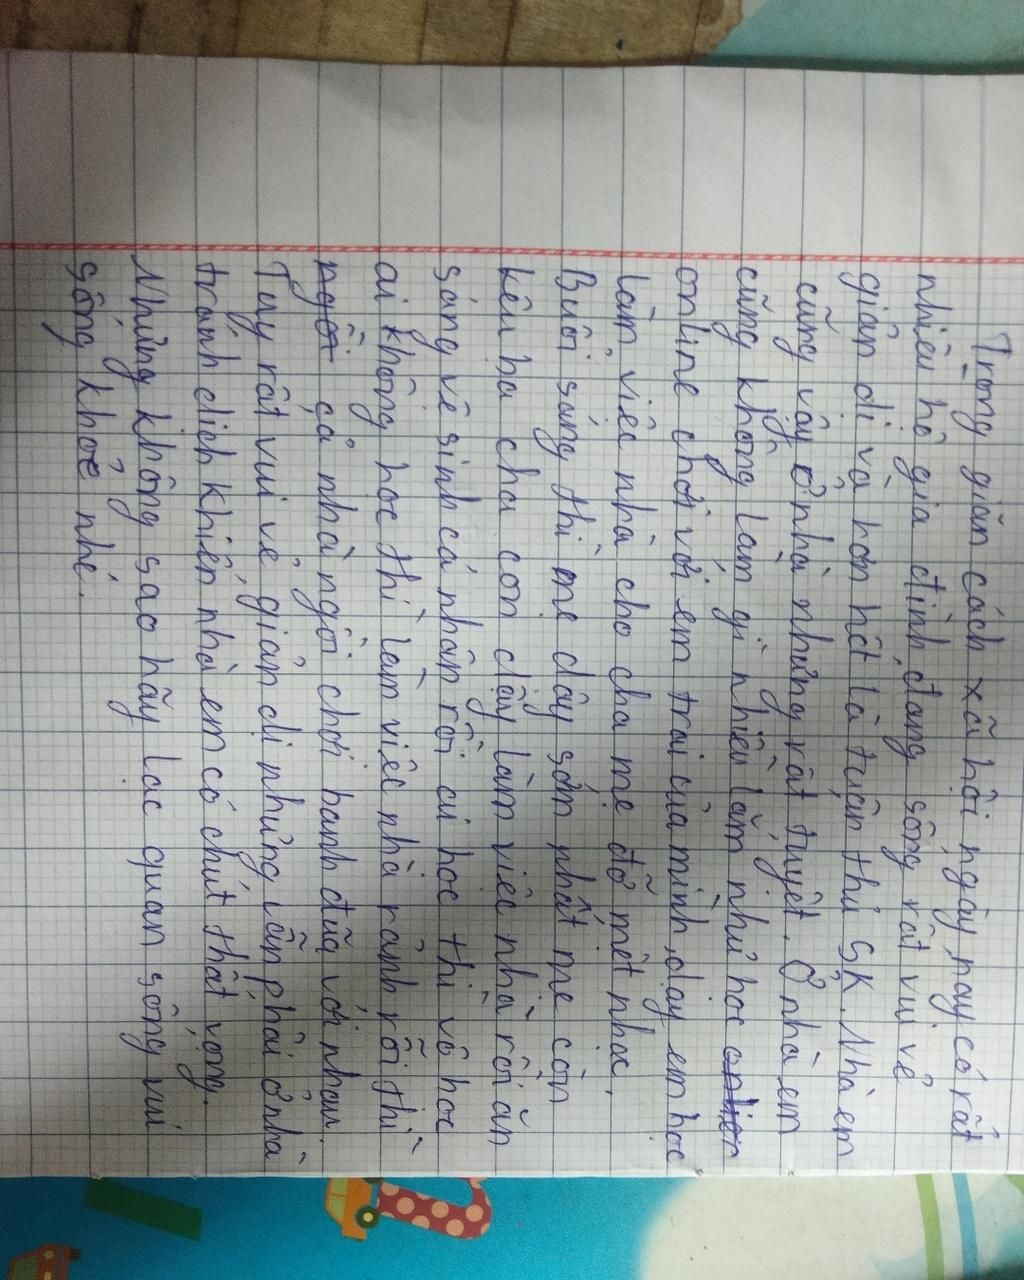 Trong giãn cách xã hội ngày nay có rất
nhiều hộ gia đình đang sống rất vui vẻ
giản dị và hơn hết là tuân thủ 5K. Nhà em
cũng vậy ở nhà nhưng rất tuyệt. Ở nhà em
cũng không làm gì nhiều lắm như học onlien
online chơi với em trai của mình, dạy em học
làm việc nhà cho cha mẹ đỡ mệt nhọc,
Buổi sáng thì mẹ dậy sớm nhất mẹ còn
kêu ba cha con dậy làm việc nhà rồi ăn
sáng vệ sinh cá nhân rồi ai học thì vô học
ai không học thì làm việc nhà rảnh rỗi thì
ngồi cả nhà ngồi chơi banh đũa với nhau.
Tuy rất vui vẻ giản dị nhưng vẫn phải ở nhà
tránh dịch khiến nhà em có chút thất vọng.
Nhưng không sao hãy lạc quan sống vui
sống khoẻ nhé.